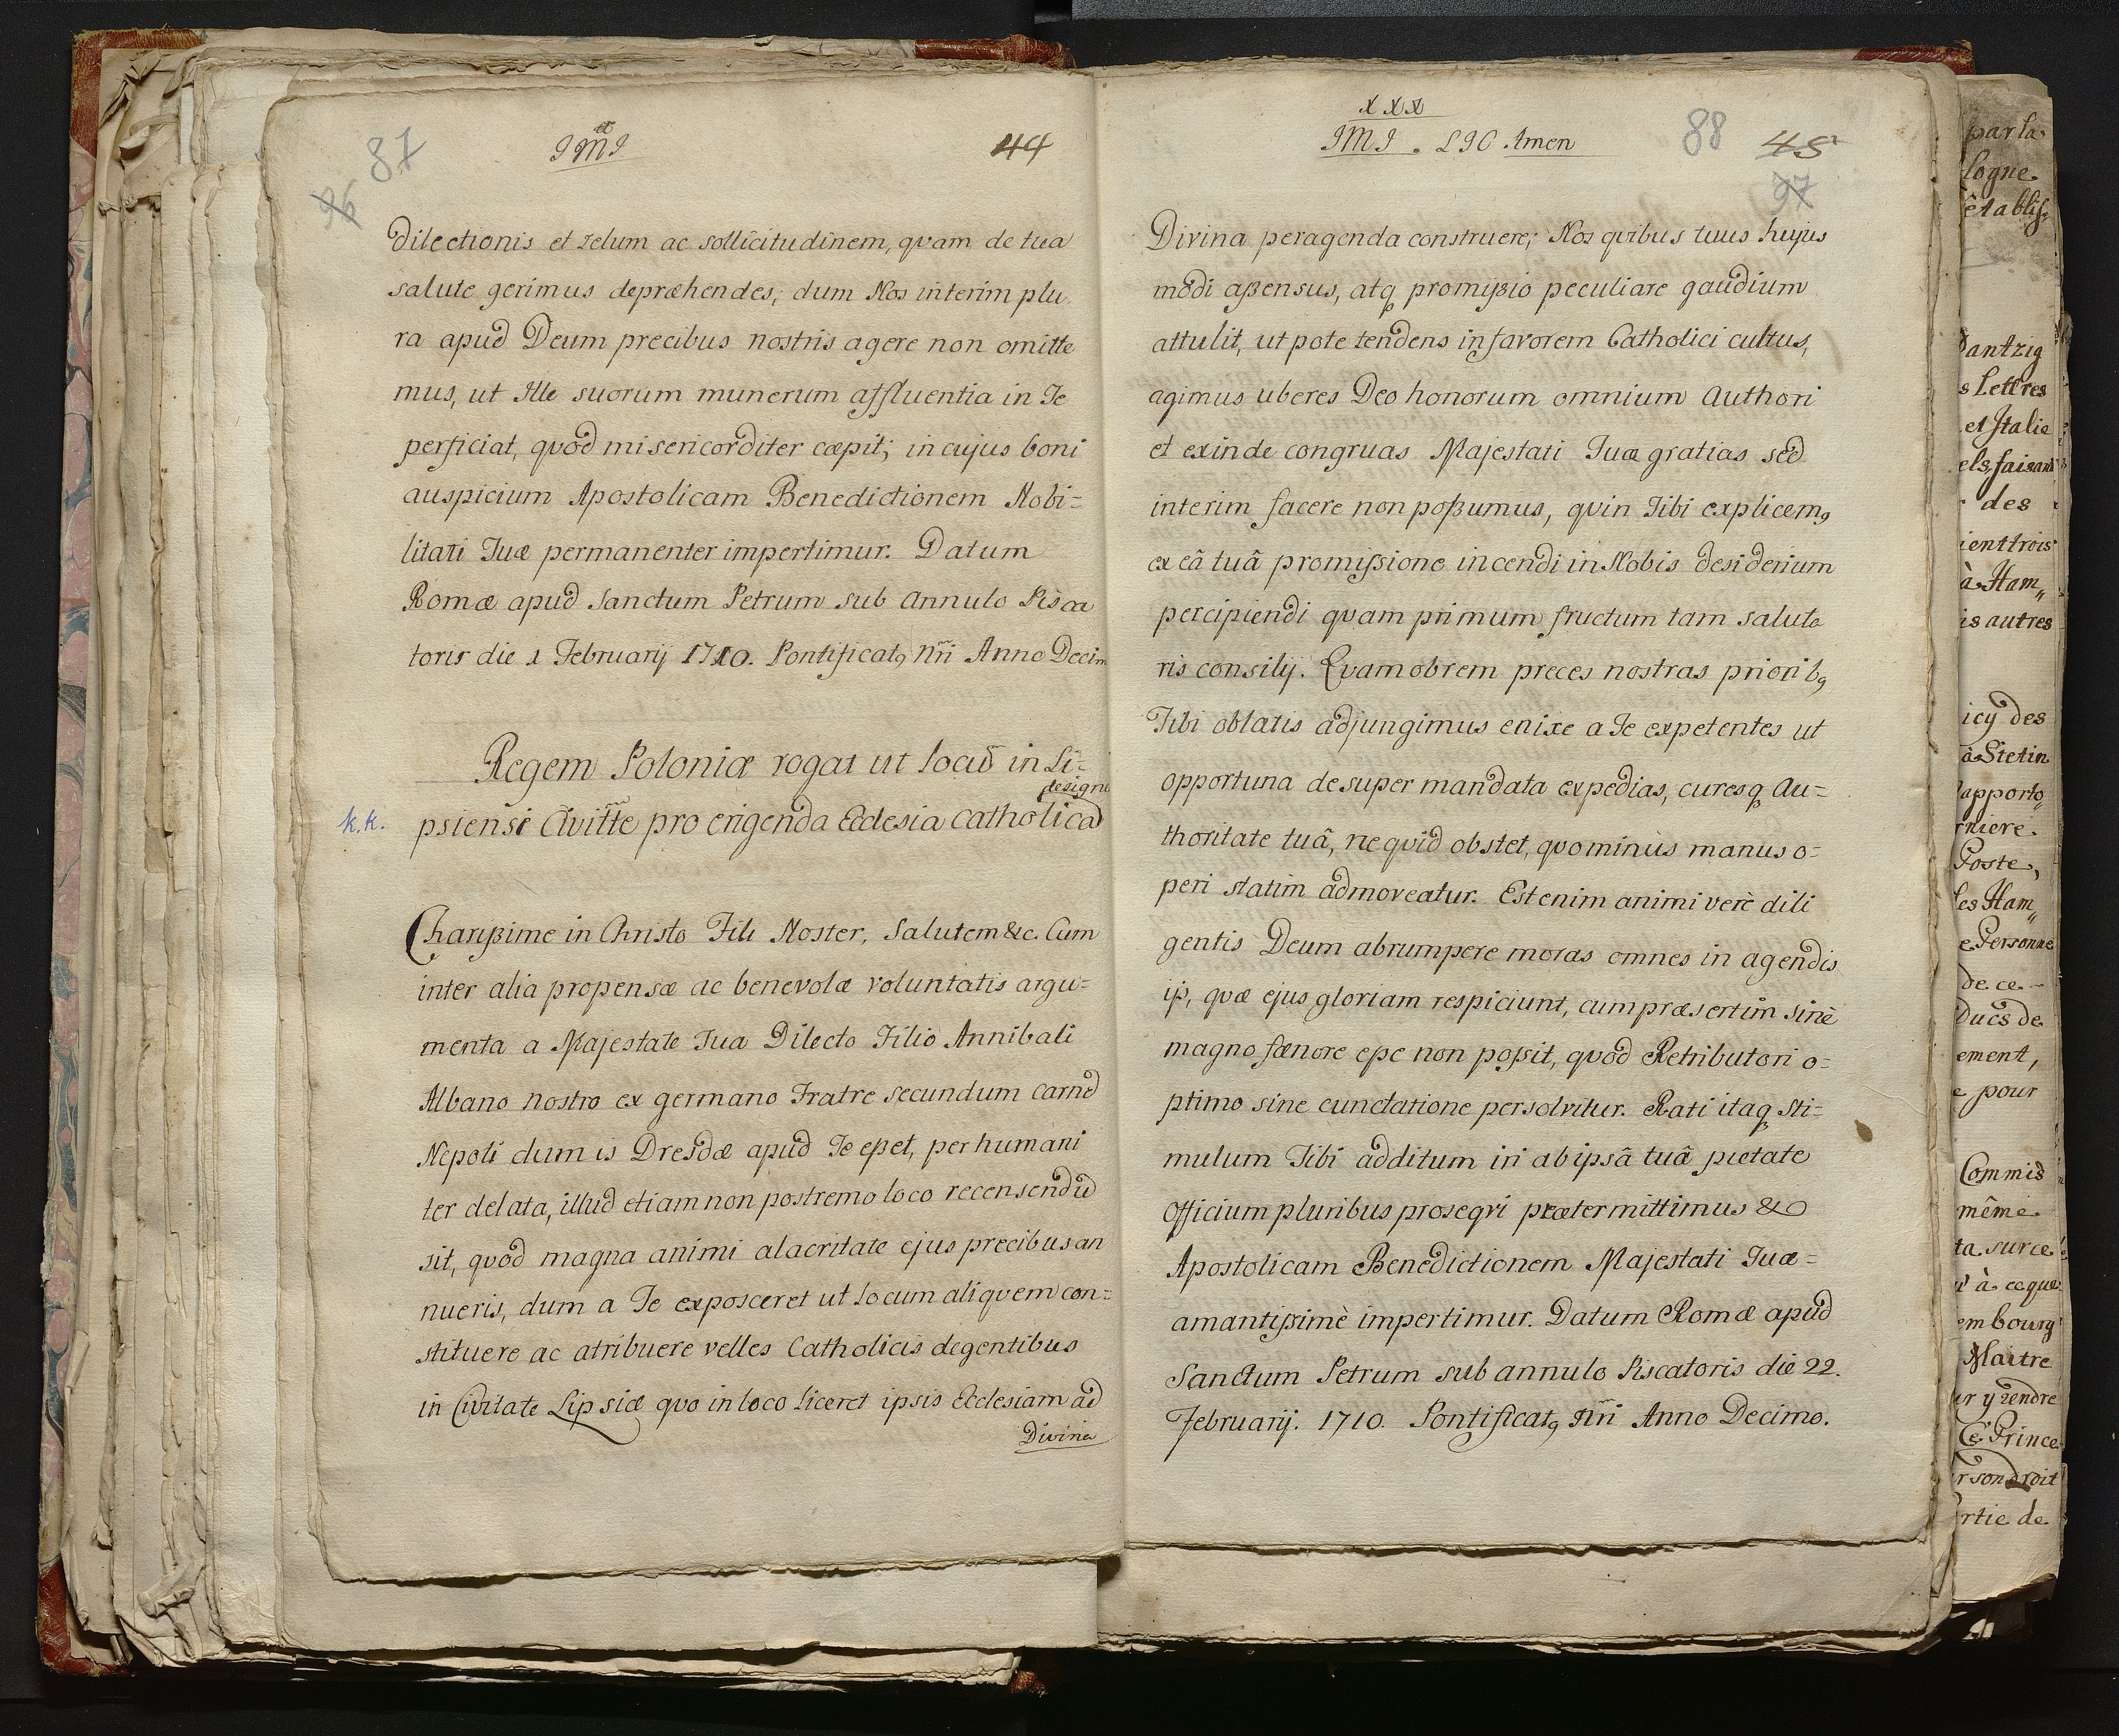 87
IMI
44
96
dilectionis et zelum ac sollicitudinem, qvam de tua
salute gerimus depræhendes; dum Nos interim plu
ra apud Deum precibus nostris agere non omitte
mus, ut Ille suorum munerum affluentia in Te
perficiat, qvod misericorditer cæpit; in cujus boni
auspicium Apostolicam Benedictionem Nobi=
litati Tuæ permanenter impertimur. Datum
Romæ apud Sanctum Petrum sub Annulo Pisca
toris die 1 Februarij 1710. Pontificatꝯ Nr̃i Anno Decim
Regem Poloniæ rogat ut locũ in Li=
design
k.k.
psiensi Civitt̃e pro erigenda Ecclesia Catholica
Charißime in Christo Fili Noster, Salutem &c. Cum
inter alia propensæ ac benevolæ voluntatis argu=
menta a Majestate Tua Dilecto Filio Annibali
Albano nostro ex germano Fratre secundum carnē
Nepoti dum is Dresdæ apud Te eßet, per humani
ter delata, illud etiam non postremo loco recensendū
sit, qvod magna animi alacritate ejus precibus an
nueris, dum a Te exposceret ut locum aliqvem con=
stituere ac atribuere velles Catholicis degentibus
in Civitate Lipsiæ qvo in loco liceret ipsis Ecclesiam ad
Divina
xxx
IMI. LIC Amen
88
45
97
Divina peragenda construere; Nos qvibus tuus hujus
modi aßensus, atq̢ promißio peculiare gaudium
attulit, ut pote tendens in favorem Catholici cultus,
agimus uberes Deo honorum omnium Authori
et exinde congruas Majestati Tuæ gratias sed
interim facere non poßumus, qvin Tibi explicemꝯ
ex eâ tuâ promißione incendi in Nobis desiderium
percipiendi qvam primum fructum tam saluta
ris consilij. Qvamobrem preces nostras prioribꝯ
Tibi oblatis adjungimus enixe a Te expetentes ut
opportuna desuper mandata expedias, curesq̢ Au=
thoritate tuâ, ne qvid obstet, qvominùs manus o=
peri statim admoveatur. Est enim animi verè dili
gentis Deum abrumpere moras omnes in agendis
ijs, quæ ejus gloriam respiciunt, cum præsertim sinè
magno fænore eße non poßit, qvod Retributori o=
ptimo sine cunctatione persolvitur. Rati itaq̢ sti=
mulum Tibi additum iri ab ipsâ tuâ pietate
Officium pluribus proseqvi prætermittimus &
Apostolicam Benedictionem Majestati Tuæ=
amantißimè impertimur. Datum Romæ apud
Sanctum Petrum sub annulo Piscatoris die 22.
Februarij. 1710. Pontificatꝯ Nr̃i Anno Decimo.
par la
logne.
établis=
Dantzig
s Lettres
et Italie
els, faisant
des
ient trois
à Ham„
is autres
icy des
à Stetin
rapporto„
rniere.
Poste,
les Ham„
e Personne
de ce
Ducs de
ement,
e pour
Commis
même
ta sur ce
r à ce que
embourg
Maitre
er y rendre
Ce Prince
r son droit
rtie de